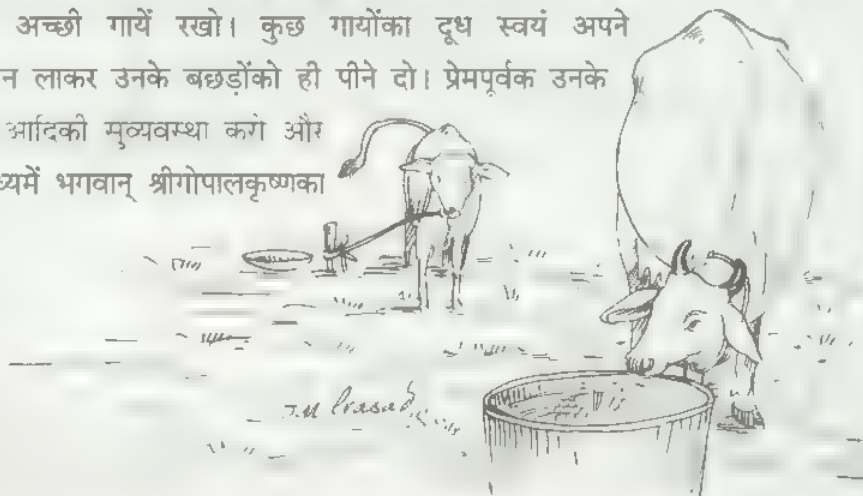 अच्छी गायें रखो। कुछ गायोंका दूध स्वयं अपने
न लाकर उनके बछड़ोंको ही पीने दो। प्रेमपूर्वक उनके
आदिकी सुव्यवस्था करो और
ध्यमें भगवान् श्रीगोपालकृष्णका
J.M Prasad